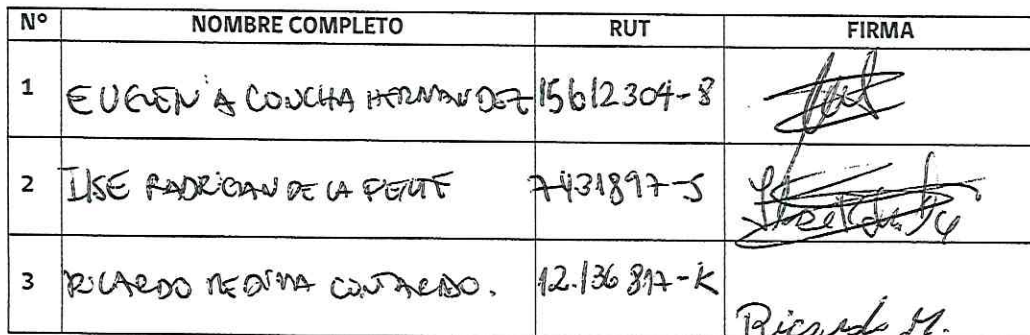 Nº NOMBRE COMPLETO RUT FIRMA
1 EUGENIA CONCHA HERNANDEZ 15612304-8
2 ILSE RADRIGAN DE LA 7431897-5
3 RICARDO MEDINA CONTARDO. 12.136 817-K Ricardo M.